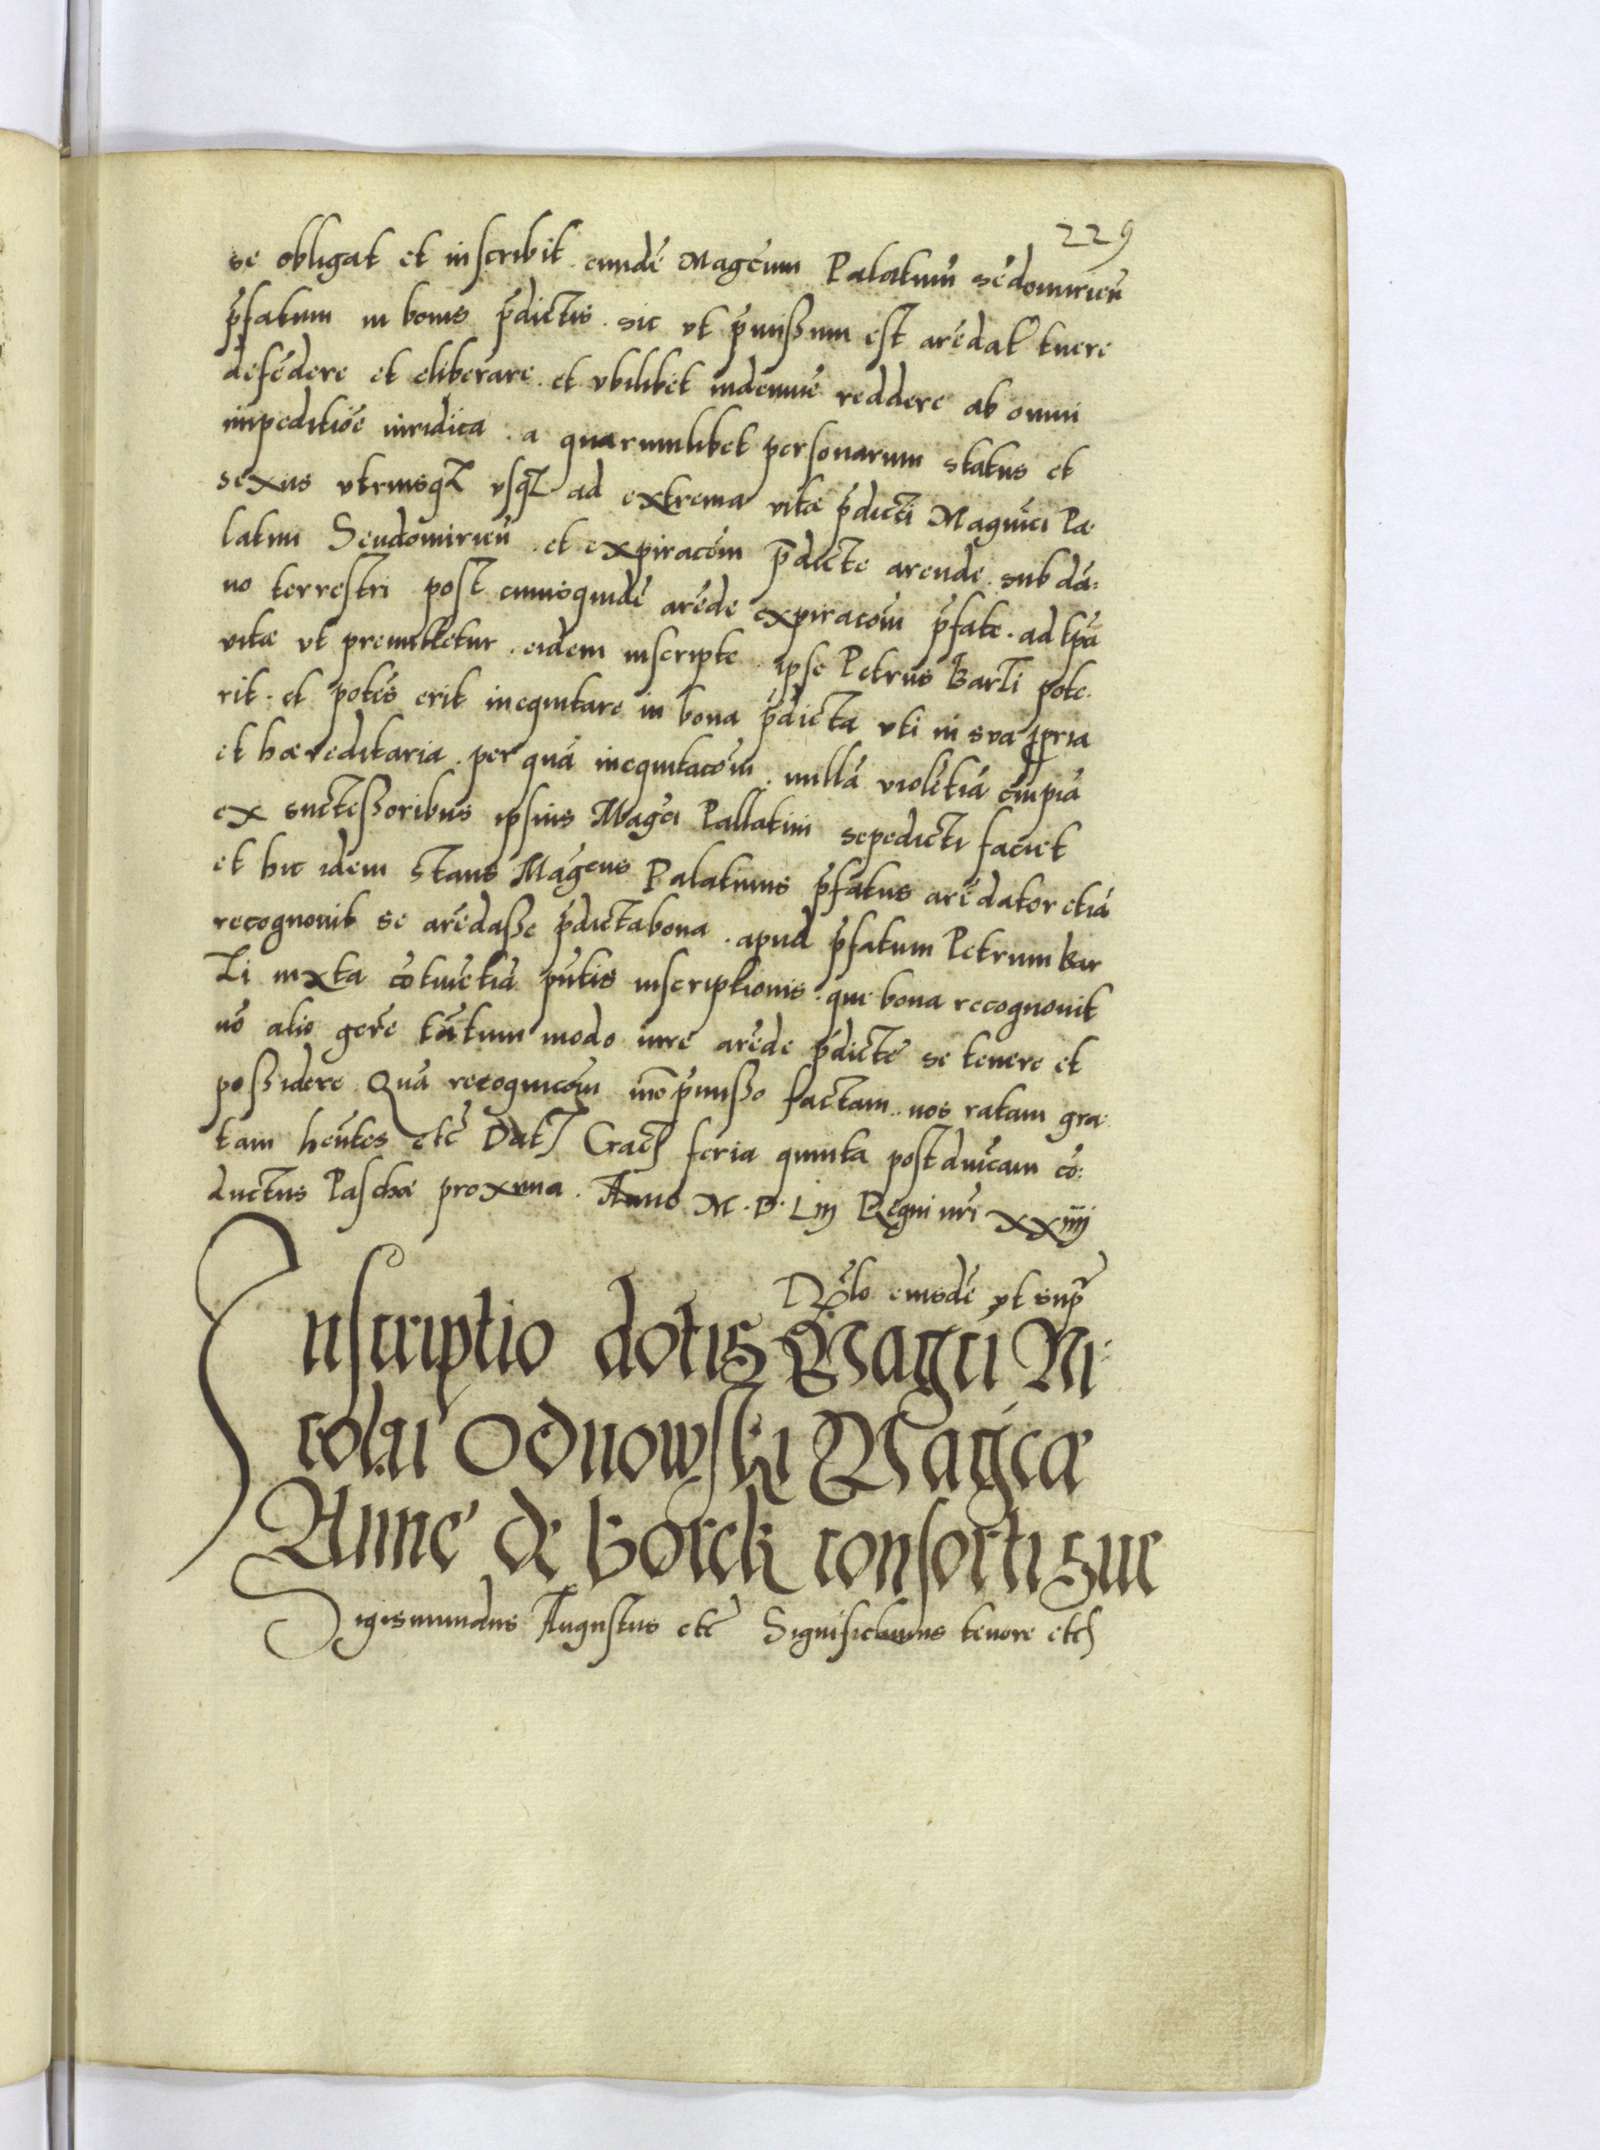 229
se obligat et inscribit eundē Magcum Palatinū sēdomirieñ
p̄fatum in bonis p̄dictis. sic vt p̄missum est arēdat̄ tuere
defēdere et eliberare. et vbilibet indemnē reddere ab omni
impeditiōe iuridica. a quarumlibet personarum status et
sexus vtriusqꝫ vsqꝫ ad extrema vitæ p̄dicti Magnīci Pa
latini Sendomirieñ. et expiracōm p̄dicte arende. sub dā:
no terrestri post cuiusquidē arēde expiracōm p̄fate. ad tp̄a
vitæ vt premittetur. eidem inscripte. ipse Petrus Barzi pote.
rit. et potēs erit inequitare in bona p̄dicta vti in sua ꝓpria
et hæreditaria. per quā inequitacōm. nullā violētiā em̄piā
ex successoribus ipsius Magci Pallatini sepedicti faciet
et hic idem stans Magcus Palatinus p̄fatus arēdator etiā
recognouit se arēdasse p̄dicta bona. apud p̄fatum Petrum Bar
zi iuxta cōtinētiā pn̄tis inscriptionis. que bona recognouit
nō alio gerē tātum modo iure arēde p̄dicte se tenere et
possidere Quā recognicōm mō p̄misso factam. nos ratam gra
tam hēntes etc̄ Datꝫ Cracꝫ feria quinta post dn̄icam cō:
ductus Paschæ proxima. Anno M. D. Liij Regni nr̄i xxiiij
Rēlo eiusdē vt supr̄
Inscriptio dotis Magci Ni:
colai Odnowski Magcæ
Anne de Gorck consorti sue
Sigismundus Augustus etc̄ Significamus tenore etcꝫ